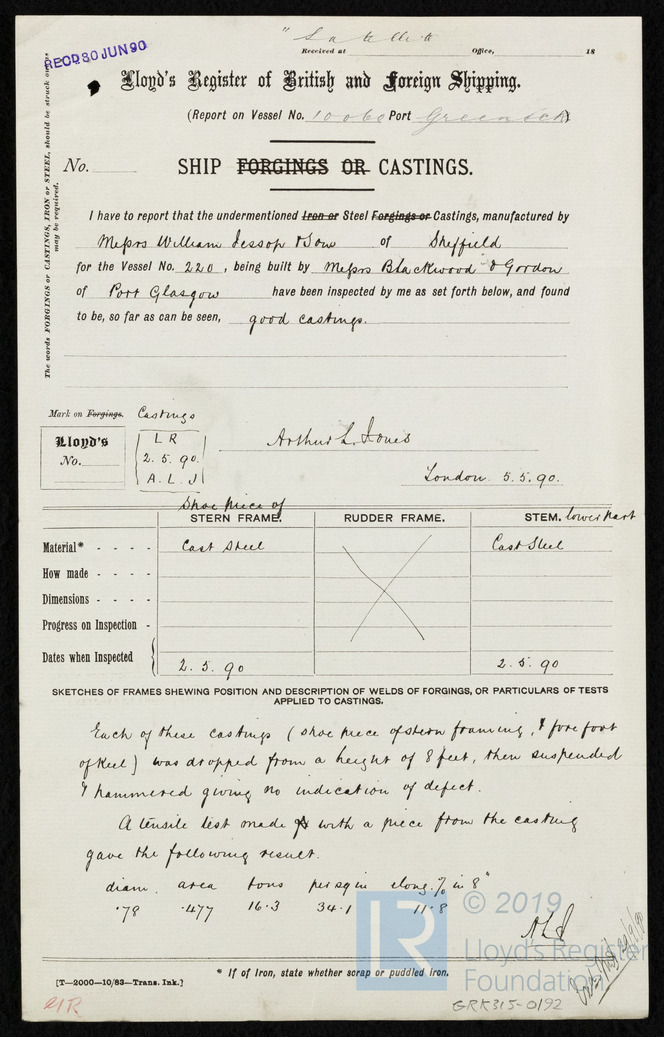 "Satellite
Received at Office, 18
RECD 30 JUN 90
Lloyd's Register of British and Foreign Shipping.
(Report on Vessel No. 10060 Port Greenock)
The words FORGINGS or CASTINGS, IRON or STEEL, should be struck out as
may be required.
No. SHIP FORGINGS OR CASTINGS.
I have to report that the undermentioned Iron or Steel Forgings or Castings, manufactured by
Messrs William Jessop & Sons of Sheffield
for the Vessel No. 220, being built by Messrs Blackwood & Gordon
of Port Glasgow have been inspected by me as set forth below, and found
to be, so far as can be seen, good castings.
Mark on Forgings. Castings
Lloyd's
No.
L R
2. 5. 90.
A. L. J
Arthur L. Jones
London 5. 5. 90.
Shoe piece of
STERN FRAME. RUDDER FRAME. STEM. lower part
Material* - - - - Cast Steel Cast Steel
How made - - - -
Dimensions - - - -
Progress on Inspection -
Dates when Inspected 2. 5. 90 2. 5. 90
SKETCHES OF FRAMES SHEWING POSITION AND DESCRIPTION OF WELDS OF FORGINGS, OR PARTICULARS OF TESTS
APPLIED TO CASTINGS.
Each of these castings (shoe piece of stern framing, & fore foot
of keel) was dropped from a height of 8 feet, then suspended
& hammered giving no indication of defect.
A tensile test made with a piece from the casting
gave the following result.
diam. area tons per sq in elong. % in 8"
.78 .477 16.3 34.1 11.8
ALJ
© 2019
LR
Lloyd's Register
Foundation
* If of Iron, state whether scrap or puddled iron.
[T—2000—10/83—Trans. Ink.]
GRK315-0192